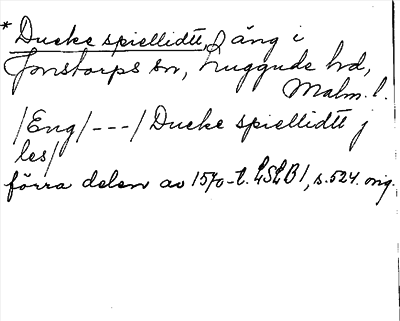 * Ducke spiellidtt, äng i
Jonstorps sn, Luggude hd,
Malm. l.
/Eng/---/ Ducke spiellidtt j
les/
förra delen av 1570-t. LSLB I, s. 524. orig.